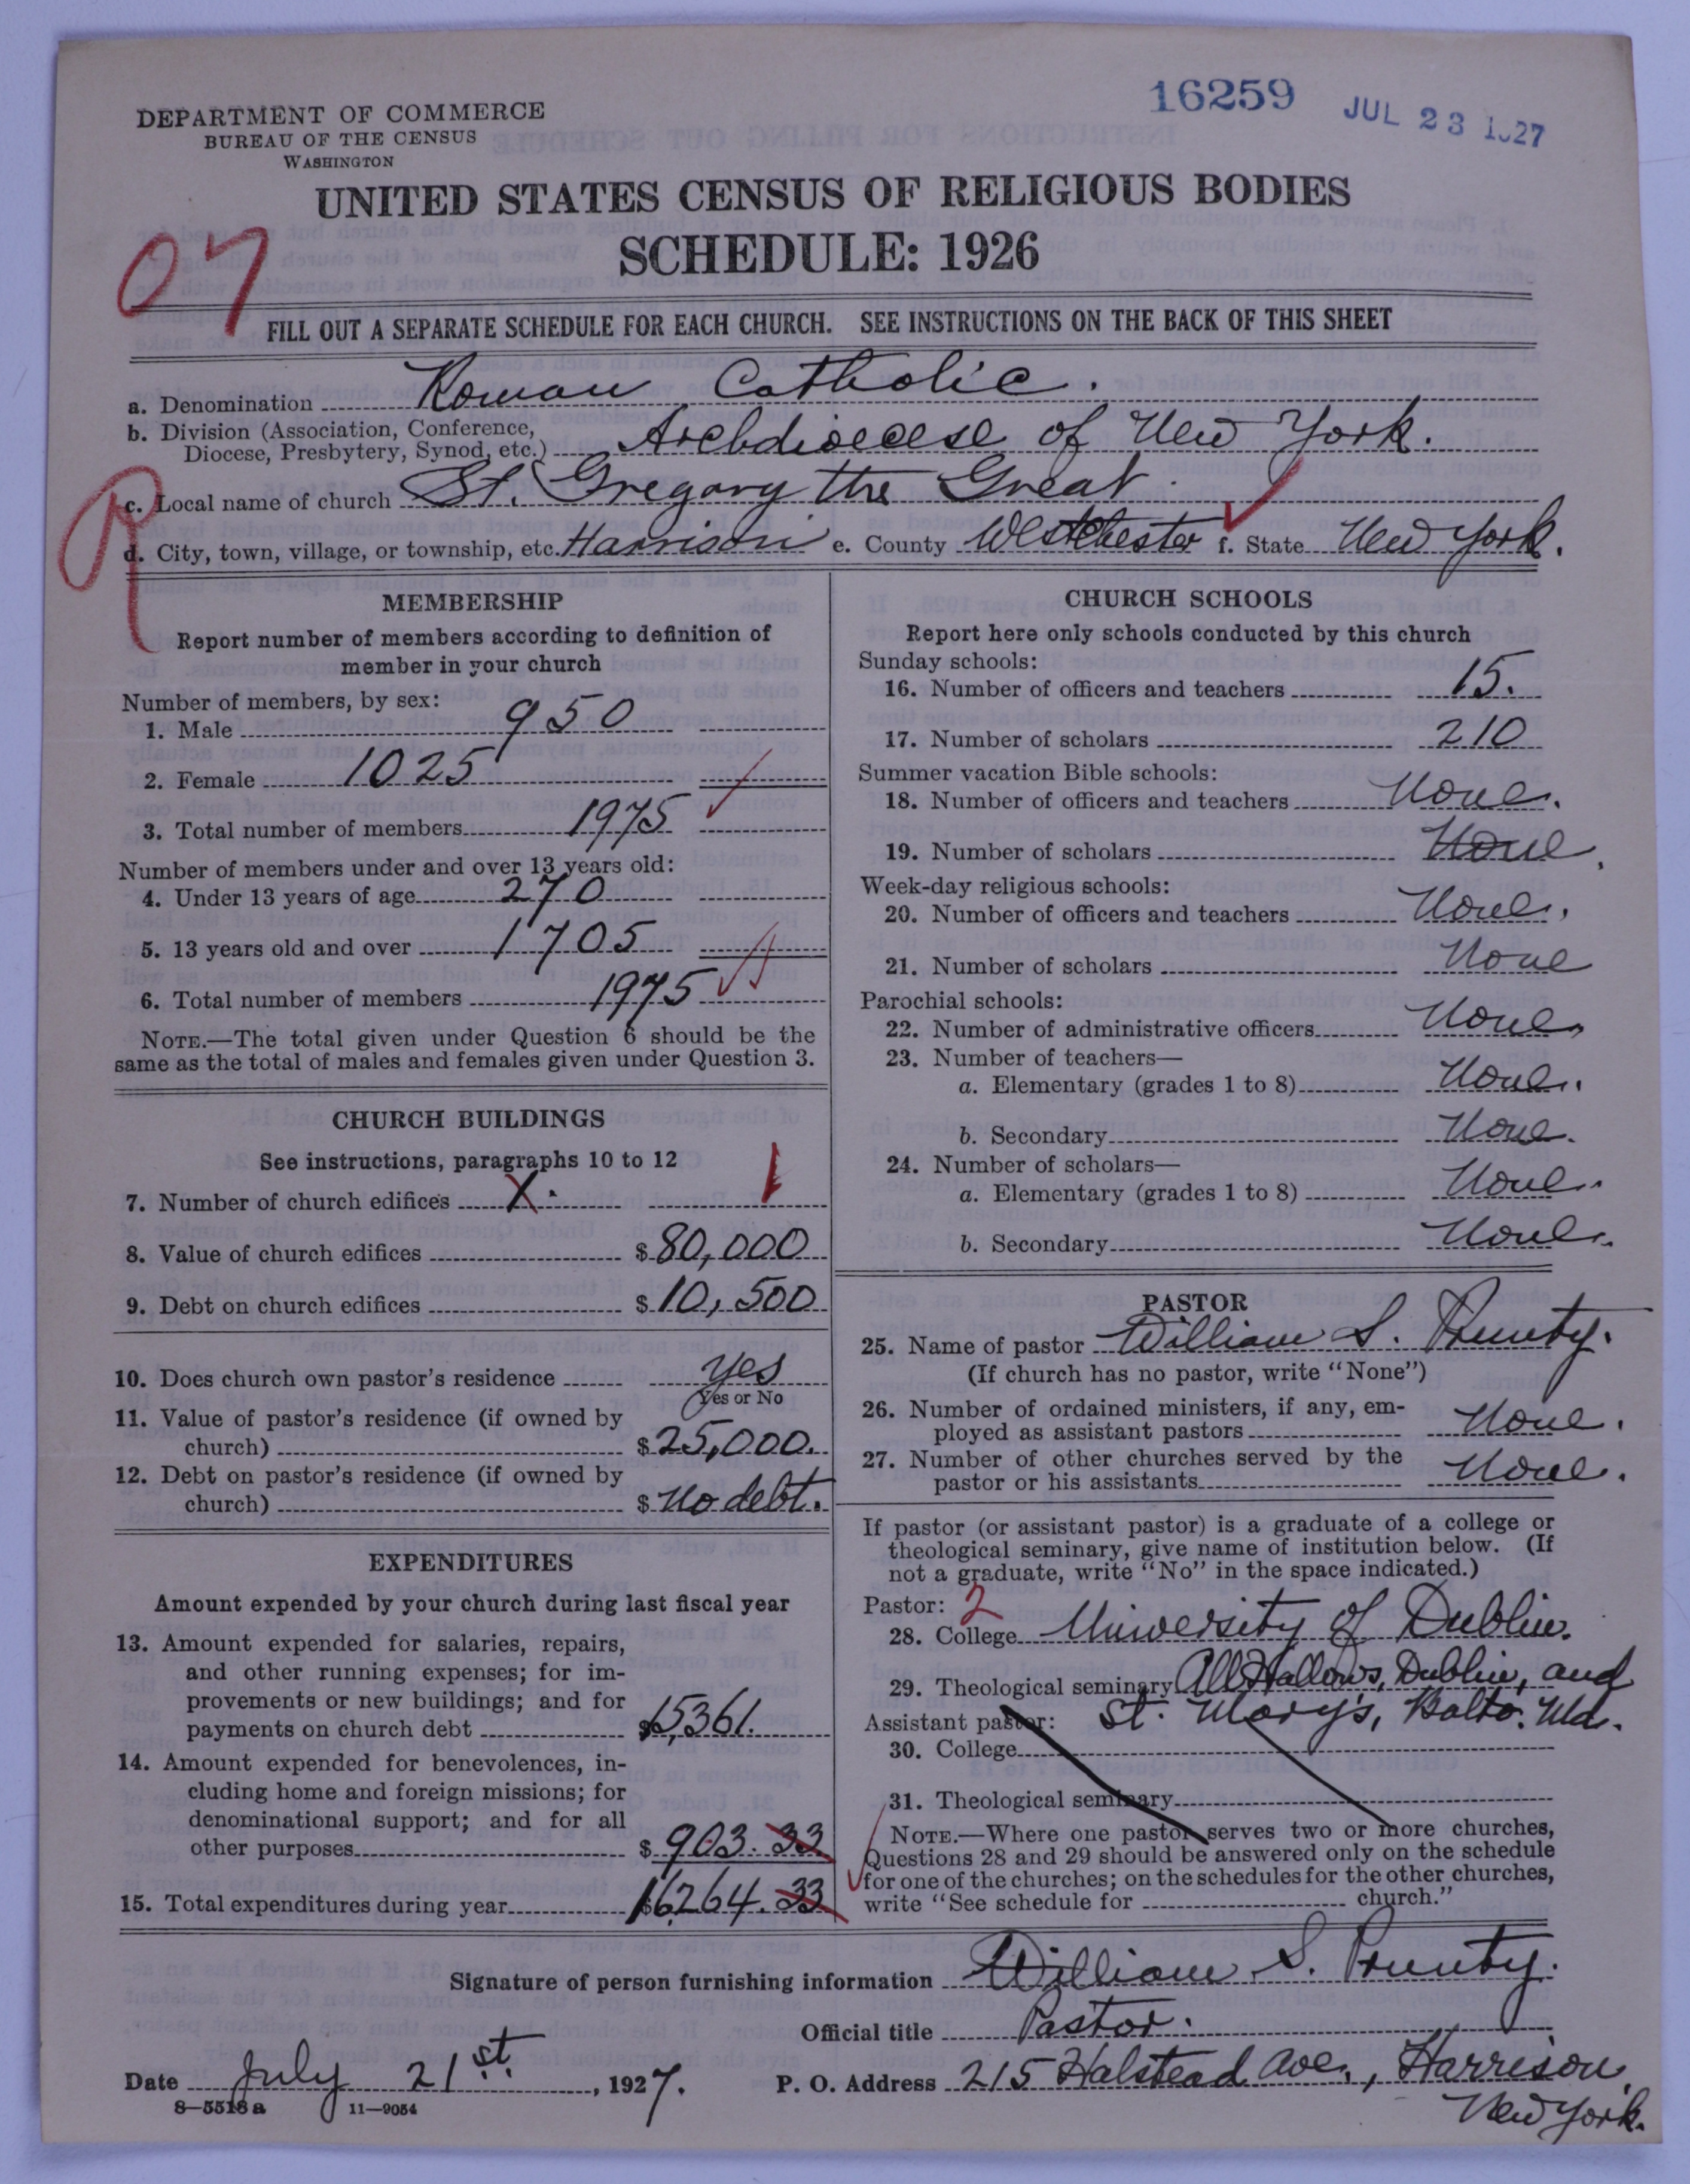 16259 JUL 23 1927
DEPARTMENT OF COMMERCE
BUREAU OF THE CENSUS
WASHINGTON
UNITED STATES CENSUS OF RELIGIOUS BODIES
SCHEDULE: 1926
07
FILL OUT A SEPARATE SCHEDULE FOR EACH CHURCH. SEE INSTRUCTIONS ON THE BACK OF THIS SHEET
a. Denomination Roman Catholic.
b. Division (Association, Conference,
Diocese, Presbytery, Synod, etc.) Archdiocese of New York.
c. Local name of church St. Gregory the Great.
d. City, town, village, or township, etc. Harrison e. County Westchester f. State New York.
MEMBERSHIP
Report number of members according to definition of
member in your church
Number of members, by sex:
1. Male 950
2. Female 1025
3. Total number of members 1975
Number of members under and over 13 years old:
4. Under 13 years of age 270
5. 13 years old and over 1705
6. Total number of members 1975
NOTE.—The total given under Question 6 should be the
same as the total of males and females given under Question 3.
CHURCH BUILDINGS
See instructions, paragraphs 10 to 12
7. Number of church edifices 1. 1
8. Value of church edifices $ 80,000
9. Debt on church edifices $ 10,500
10. Does church own pastor's residence yes
Yes or No
11. Value of pastor's residence (if owned by
church) $ 25,000.
12. Debt on pastor's residence (if owned by
church) $ No debt.
EXPENDITURES
Amount expended by your church during last fiscal year
13. Amount expended for salaries, repairs,
and other running expenses; for im-
provements or new buildings; and for
payments on church debt $ 15,361.
14. Amount expended for benevolences, in-
cluding home and foreign missions; for
denominational support; and for all
other purposes $ 903.33
15. Total expenditures during year $ 16,264.33
CHURCH SCHOOLS
Report here only schools conducted by this church
Sunday schools:
16. Number of officers and teachers 15.
17. Number of scholars 210
Summer vacation Bible schools:
18. Number of officers and teachers None.
19. Number of scholars None.
Week-day religious schools:
20. Number of officers and teachers None.
21. Number of scholars None
Parochial schools:
22. Number of administrative officers None.
23. Number of teachers—
a. Elementary (grades 1 to 8) None.
b. Secondary None.
24. Number of scholars—
a. Elementary (grades 1 to 8) None.
b. Secondary None.
PASTOR
25. Name of pastor William S. Prunty.
(If church has no pastor, write "None")
26. Number of ordained ministers, if any, em-
ployed as assistant pastors None.
27. Number of other churches served by the
pastor or his assistants None.
If pastor (or assistant pastor) is a graduate of a college or
theological seminary, give name of institution below. (If
not a graduate, write "No" in the space indicated.)
Pastor: 2
28. College University of Dublin.
29. Theological seminary All Hallows, Dublin, and
Assistant pastor: St. Mary's, Balto. Md.
30. College
31. Theological seminary
NOTE.—Where one pastor serves two or more churches,
Questions 28 and 29 should be answered only on the schedule
for one of the churches; on the schedules for the other churches,
write "See schedule for church."
Signature of person furnishing information William S. Prunty.
Official title Pastor.
Date July 21st, 1927. P. O. Address 215 Halstead Ave., Harrison,
8—5518a 11—9054 New York.